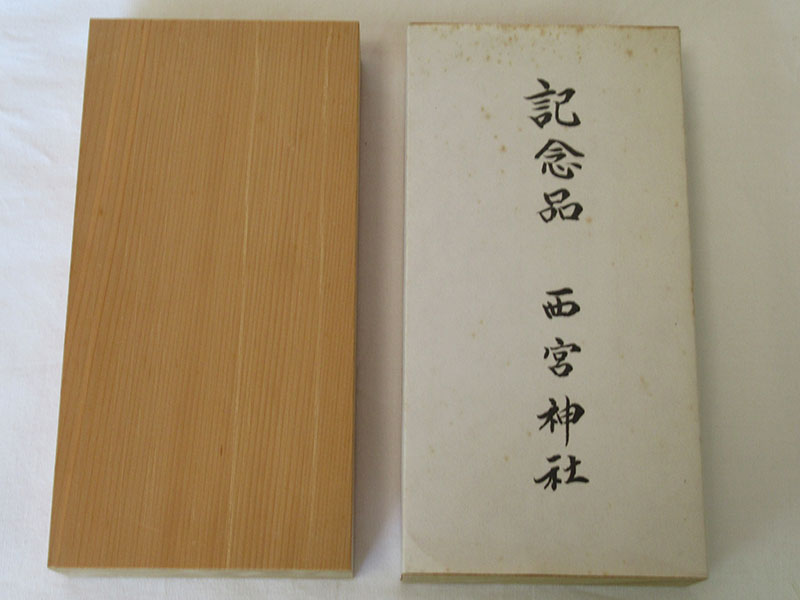 記念品 西宮神社